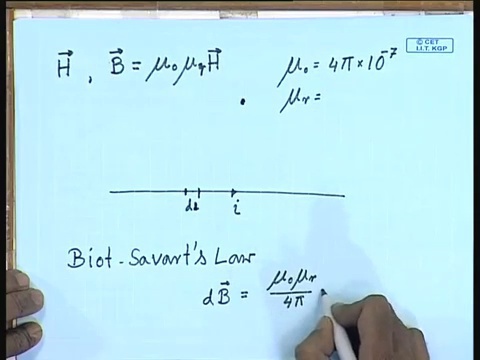 © CET
I.I.T. KGP
H⃗ , B⃗ = μ₀ μᵣ H⃗
μ₀ = 4π × 10⁻⁷
μᵣ =
dl
i
Biot-Savart's Law
dB⃗ = μ₀μᵣ / 4π